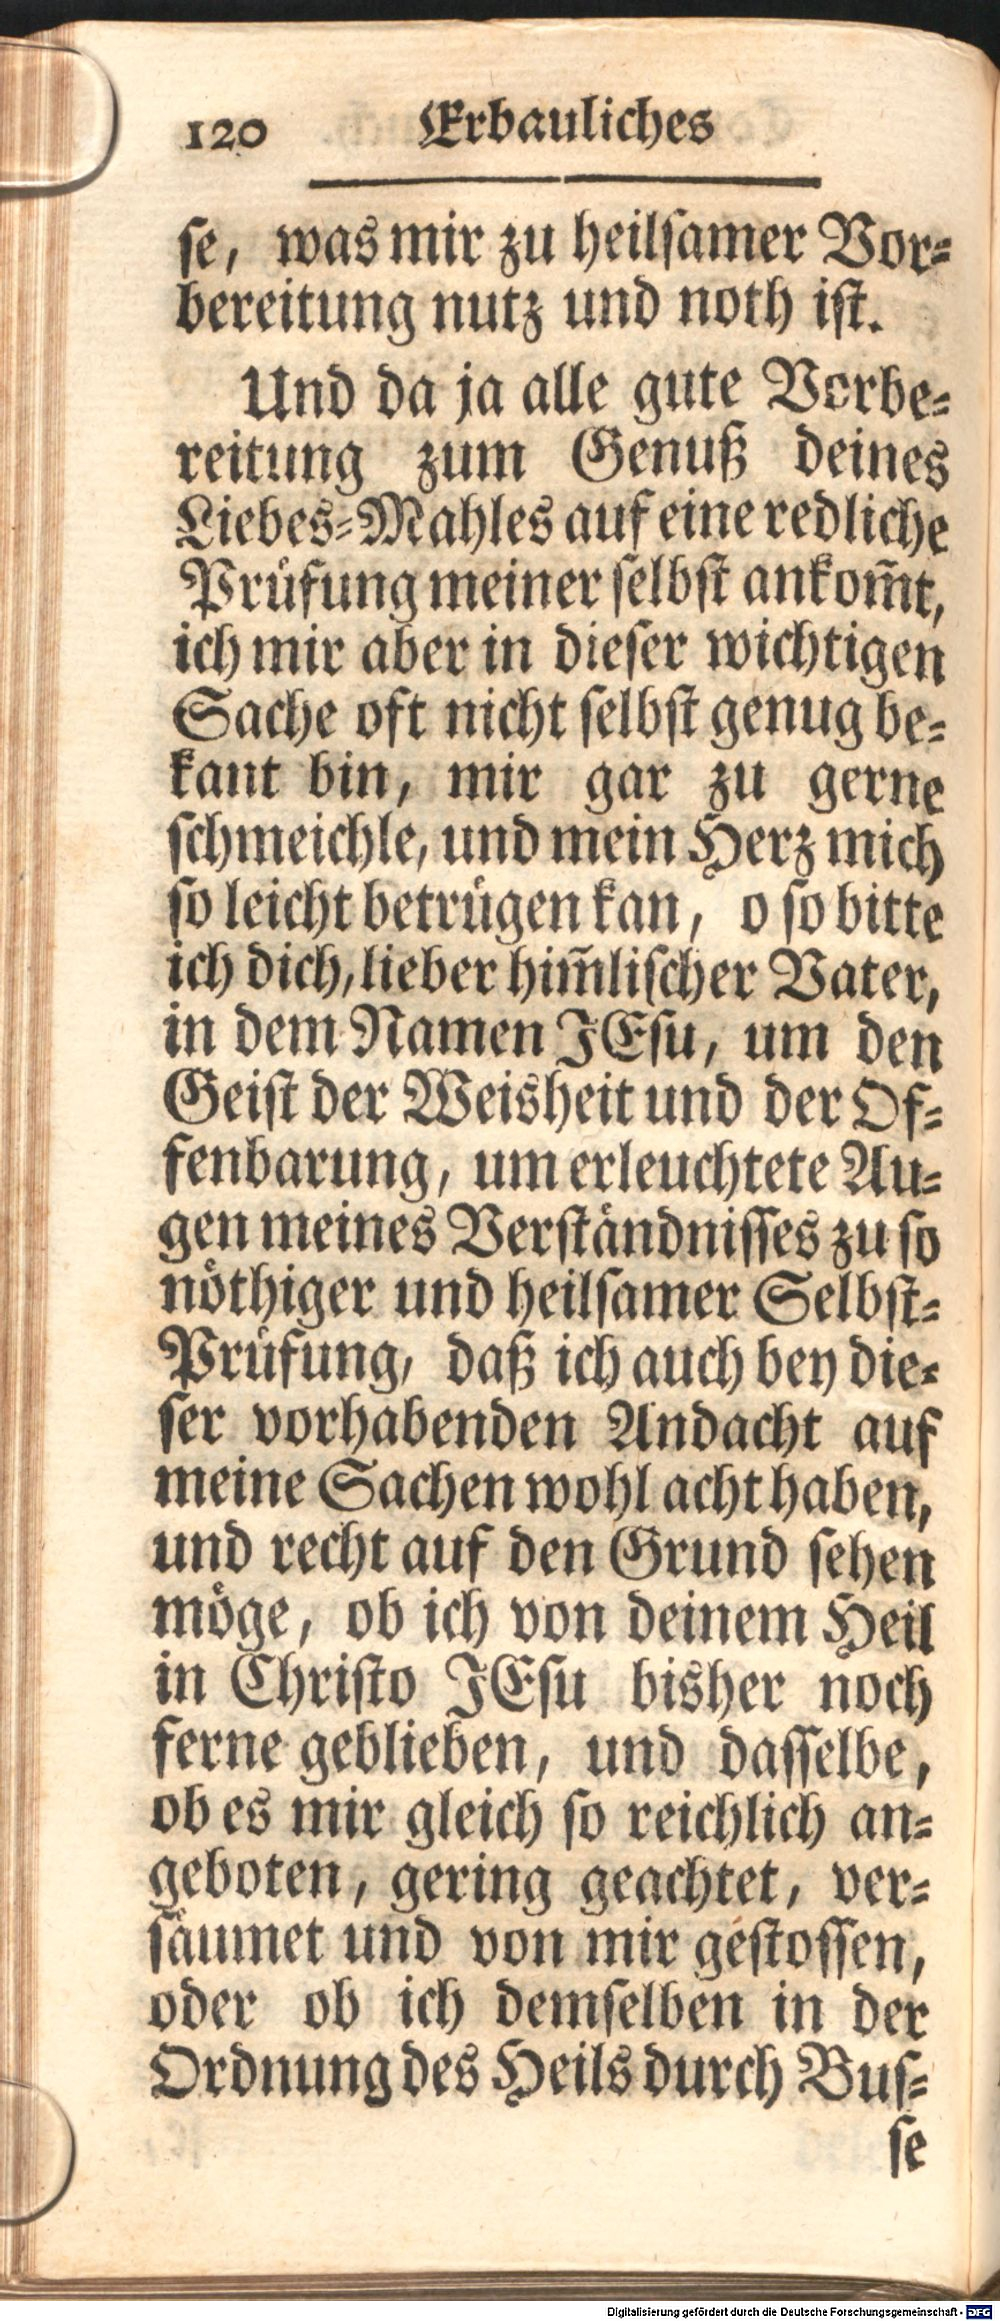 120 Erbauliches
se, was mir zu heilsamer Vor-
bereitung nutz und noth ist.
Und da ja alle gute Vorbe-
reitung zum Genuß deines
Liebes-Mahles auf eine redliche
Prüfung meiner selbst ankom̃t,
ich mir aber in dieser wichtigen
Sache oft nicht selbst genug be-
kant bin, mir gar zu gerne
schmeichle, und mein Herz mich
so leicht betrügen kan, o so bitte
ich dich, lieber him̃lischer Vater,
in dem Namen JEsu, um den
Geist der Weisheit und der Of-
fenbarung, um erleuchtete Au-
gen meines Verständnisses zu so
nöthiger und heilsamer Selbst-
Prüfung, daß ich auch bey die-
ser vorhabenden Andacht auf
meine Sachen wohl acht haben,
und recht auf den Grund sehen
möge, ob ich von deinem Heil
in Christo JEsu bisher noch
ferne geblieben, und dasselbe,
ob es mir gleich so reichlich an-
geboten, gering geachtet, ver-
säumet und von mir gestossen,
oder ob ich demselben in der
Ordnung des Heils durch Bus-
se
Digitalisierung gefördert durch die Deutsche Forschungsgemeinschaft - DFG